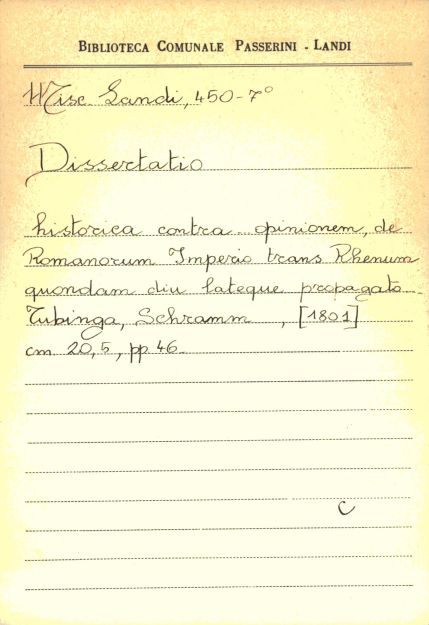 BIBLIOTECA COMUNALE PASSERINI - LANDI
Misc. Landi, 450-7°
Dissertatio
historica contra opinionem, de
Romanorum Imperio trans Rhenum
quondam diu lateque propagato -
Tubinga, Schramm , [1801]
cm. 20,5, pp. 46.
C